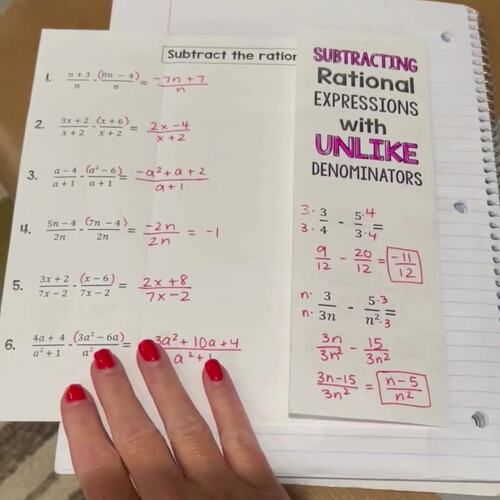 Subtract the ration
1. n + 3 / n - (8n - 4) / n = -7n + 7 / n
2. 3x + 2 / x + 2 - (x + 6) / x + 2 = 2x - 4 / x + 2
3. a - 4 / a + 1 - (a² - 6) / a + 1 = -a² + a + 2 / a + 1
4. 5n - 4 / 2n - (7n - 4) / 2n = -2n / 2n = -1
5. 3x + 2 / 7x - 2 - (x - 6) / 7x - 2 = 2x + 8 / 7x - 2
6. 4a + 4 / a² + 1 - (3a² - 6a) / a² = 3a² + 10a + 4 / a² + 1
SUBTRACTING
Rational
EXPRESSIONS
with
UNLIKE
DENOMINATORS
3· 3 / 3· 4 - 5·4 / 3·4 =
9 / 12 - 20 / 12 = -11 / 12
n· 3 / n· 3n - 5·3 / n²·3
3n / 3n² - 15 / 3n²
3n - 15 / 3n² = n - 5 / n²